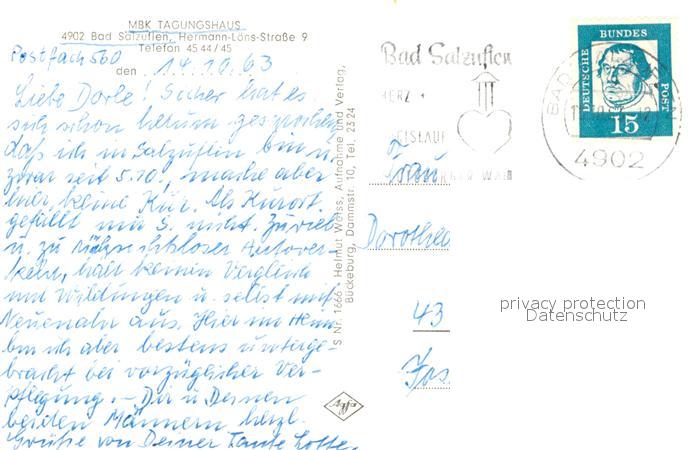 MBK TAGUNGSHAUS
4902 Bad Salzuflen, Hermann-Löns-Straße 9
Telefon 45 44/45
Postfach 560
den 14.10.63
Liebe Dorle! Sicher hat es
sich schon herum gesprochen,
daß ich in Salzuflen bin u.
zwar seit 5.10., mache aber
hier keine Kur. Als Kurort
gefällt mir S. nicht. Zuviel
u. zu rücksichtsloser Autover-
kehr, hält keinen Vergleich
mit Wildungen u. selbst mit
Neuenahr aus. Hier im Heim
bin ich aber bestens unterge-
bracht bei vorzüglicher Ver-
pflegung. – Dir u. Deinen
beiden Männern herzl.
Grüße von Deiner Tante Lotte
S Nr. 1666 • Helmut Weiss, Aufnahme und Verlag,
Bückeburg, Dammstr. 10, Tel. 2324
Agfa
Bad Salzuflen
HERZ
KREISLAUF
BAD
4902
DEUTSCHE BUNDESPOST
15
Frau
Dorothea
43
privacy protection
Datenschutz